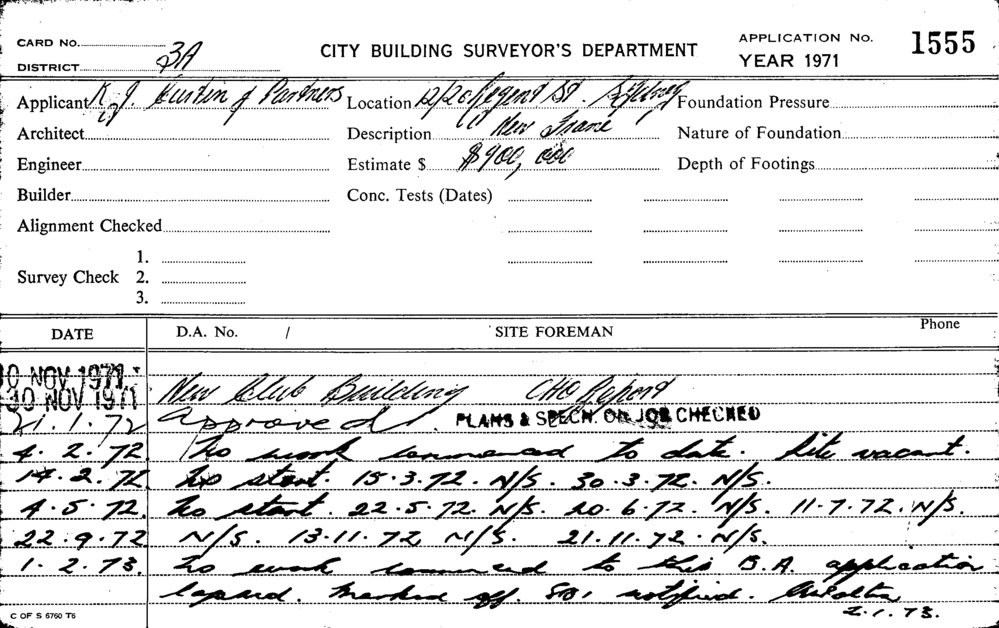 CARD No. CITY BUILDING SURVEYOR'S DEPARTMENT APPLICATION No. 1555
DISTRICT 3A YEAR 1971
Applicant K. J. Curtin & Partners Location 12/20 Regent St. Sydney Foundation Pressure
Architect Description New Frame Nature of Foundation
Engineer Estimate $ $900,000 Depth of Footings
Builder Conc. Tests (Dates)
Alignment Checked
1.
Survey Check 2.
3.
DATE D.A. No. / SITE FOREMAN Phone
10 NOV 1971
30 NOV 1971 New Club Building CHO Report
21.1.72 Approved. PLANS & SPECN. ON JOB CHECKED
4.2.72 No work commenced to date. Site vacant.
14.2.72 No start. 15.3.72. N/S. 30.3.72. N/S.
4.5.72. No start. 22.5.72. N/S. 20.6.72. N/S. 11.7.72. N/S.
22.9.72 N/S. 13.11.72 N/S. 21.11.72. N/S.
1.2.73. No work commenced to this B.A. application
lapsed. Marked off. notified.
2.1.73.
C OF S 6760 T6